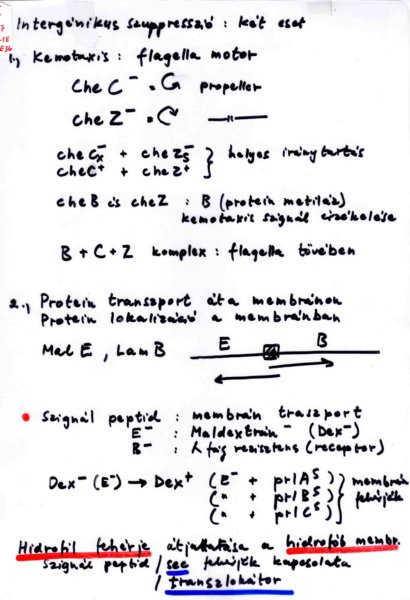 Intergénikus szuppresszió : két eset
1., Kemotaxis : flagella motor
che C⁻ = propeller
che Z⁻ = —||—
che Cx⁻ + che Zs⁻ } helyes iránytartás
che C⁺ + che Z⁺
che B és che Z : B (protein metiláz)
kemotaxis szignál érzékelése
B + C + Z komplex : flagella tövében
2., Protein transzport át a membránon
Protein lokalizáció a membránban
Mal E , Lam B E B
Szignál peptid : membrán traszport
E⁻ : Maldextrin⁻ (Dex⁻)
B⁻ : λ fág rezisztens (receptor)
Dex⁻ (E⁻) → Dex⁺ (E⁻ + prlAˢ) } membrán
(" + prlBˢ) fehérjék
(" + prlCˢ)
Hidrofil fehérje átjuttatása a hidrofób membr.
szignál peptid / sec fehérjék kapcsolata
/ transzlokátor